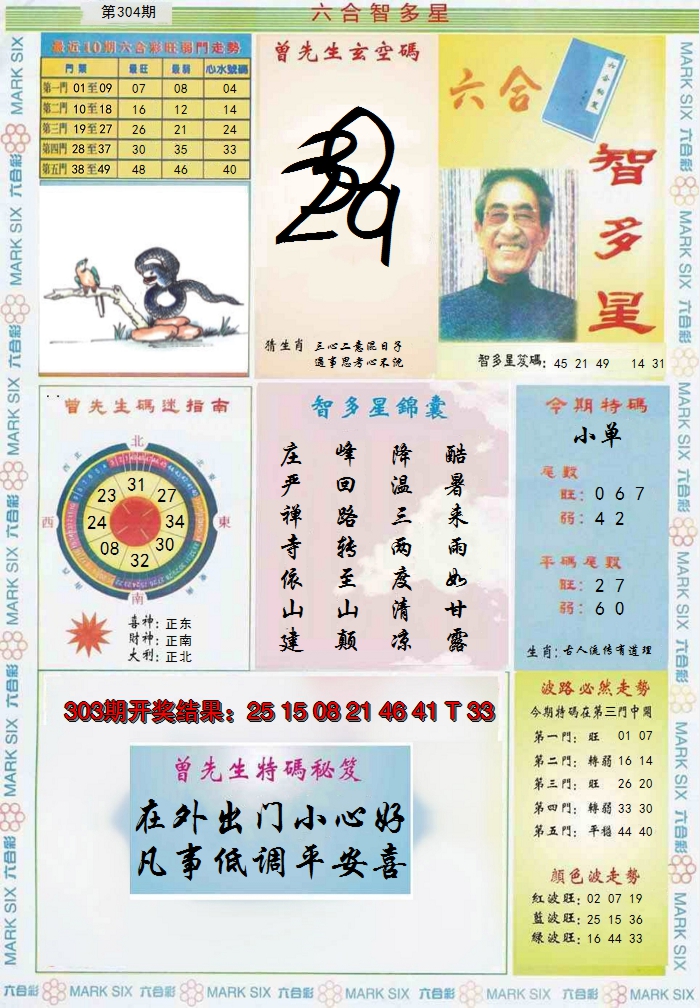 第304期
六合智多星
最近10期六合彩旺弱門走勢
門類 最旺 最弱 心水號碼
第一門 01至09 07 08 04
第二門 10至18 16 12 14
第三門 19至27 26 21 24
第四門 28至37 30 35 33
第五門 38至49 48 46 40
曾先生玄空碼
猜生肖 三心二意混日子
遇事思考心不悦
六合
智多星
智多星笈碼: 45 21 49 14 31
曾先生碼迷指南
北
西
東
南
31
27
34
30
32
08
24
23
喜神: 正东
財神: 正南
大利: 正北
智多星錦囊
酷暑来雨如甘露
降温三两度清凉
峰回路转至山颠
庄严禅寺依山建
今期特碼
小单
尾數
旺: 0 6 7
弱: 4 2
平碼尾數
旺: 2 7
弱: 6 0
生肖: 古人流传有道理
303期开奖结果: 25 15 08 21 46 41 T 33
曾先生特碼秘笈
在外出门小心好
凡事低调平安喜
波路必然走勢
今期特碼在第三門中開
第一門: 旺 01 07
第二門: 轉弱 16 14
第三門: 旺 26 20
第四門: 轉弱 33 30
第五門: 平穩 44 40
顏色波走勢
紅波旺: 02 07 19
藍波旺: 25 15 36
绿波旺: 16 44 33
MARK SIX 六合彩